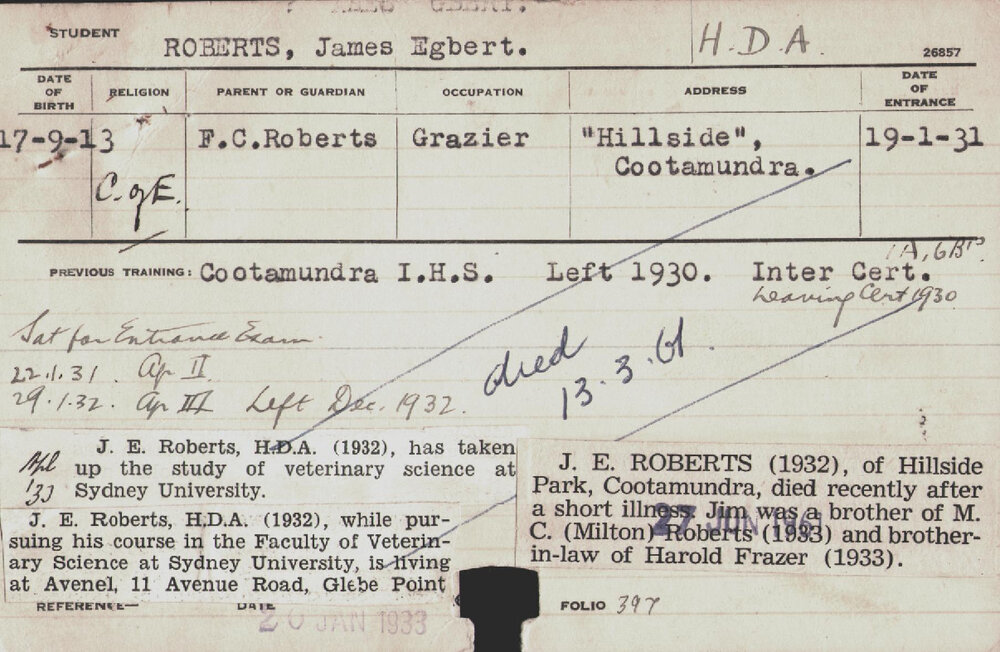 STUDENT
ROBERTS, James Egbert.
H.D.A.
26857
DATE OF BIRTH
RELIGION
PARENT OR GUARDIAN
OCCUPATION
ADDRESS
DATE OF ENTRANCE
17-9-13
C. of E.
F.C.Roberts
Grazier
"Hillside",
Cootamundra.
19-1-31
1A, 6B's
PREVIOUS TRAINING: Cootamundra I.H.S. Left 1930. Inter Cert.
Leaving Cert 1930
Sat for Entrance Exam.
22.1.31. Ap II
29.1.32. Ap III Left Dec. 1932.
died
13.3.61.
J. E. Roberts, H.D.A. (1932), has taken
up the study of veterinary science at
Sydney University.
Apl
'33
J. E. Roberts, H.D.A. (1932), while pur-
suing his course in the Faculty of Veterin-
ary Science at Sydney University, is living
at Avenel, 11 Avenue Road, Glebe Point
J. E. ROBERTS (1932), of Hillside
Park, Cootamundra, died recently after
a short illness. Jim was a brother of M.
C. (Milton) Roberts (1933) and brother-
in-law of Harold Frazer (1933).
27 JUN 1961
REFERENCE—
DATE
20 JAN 1933
FOLIO 397